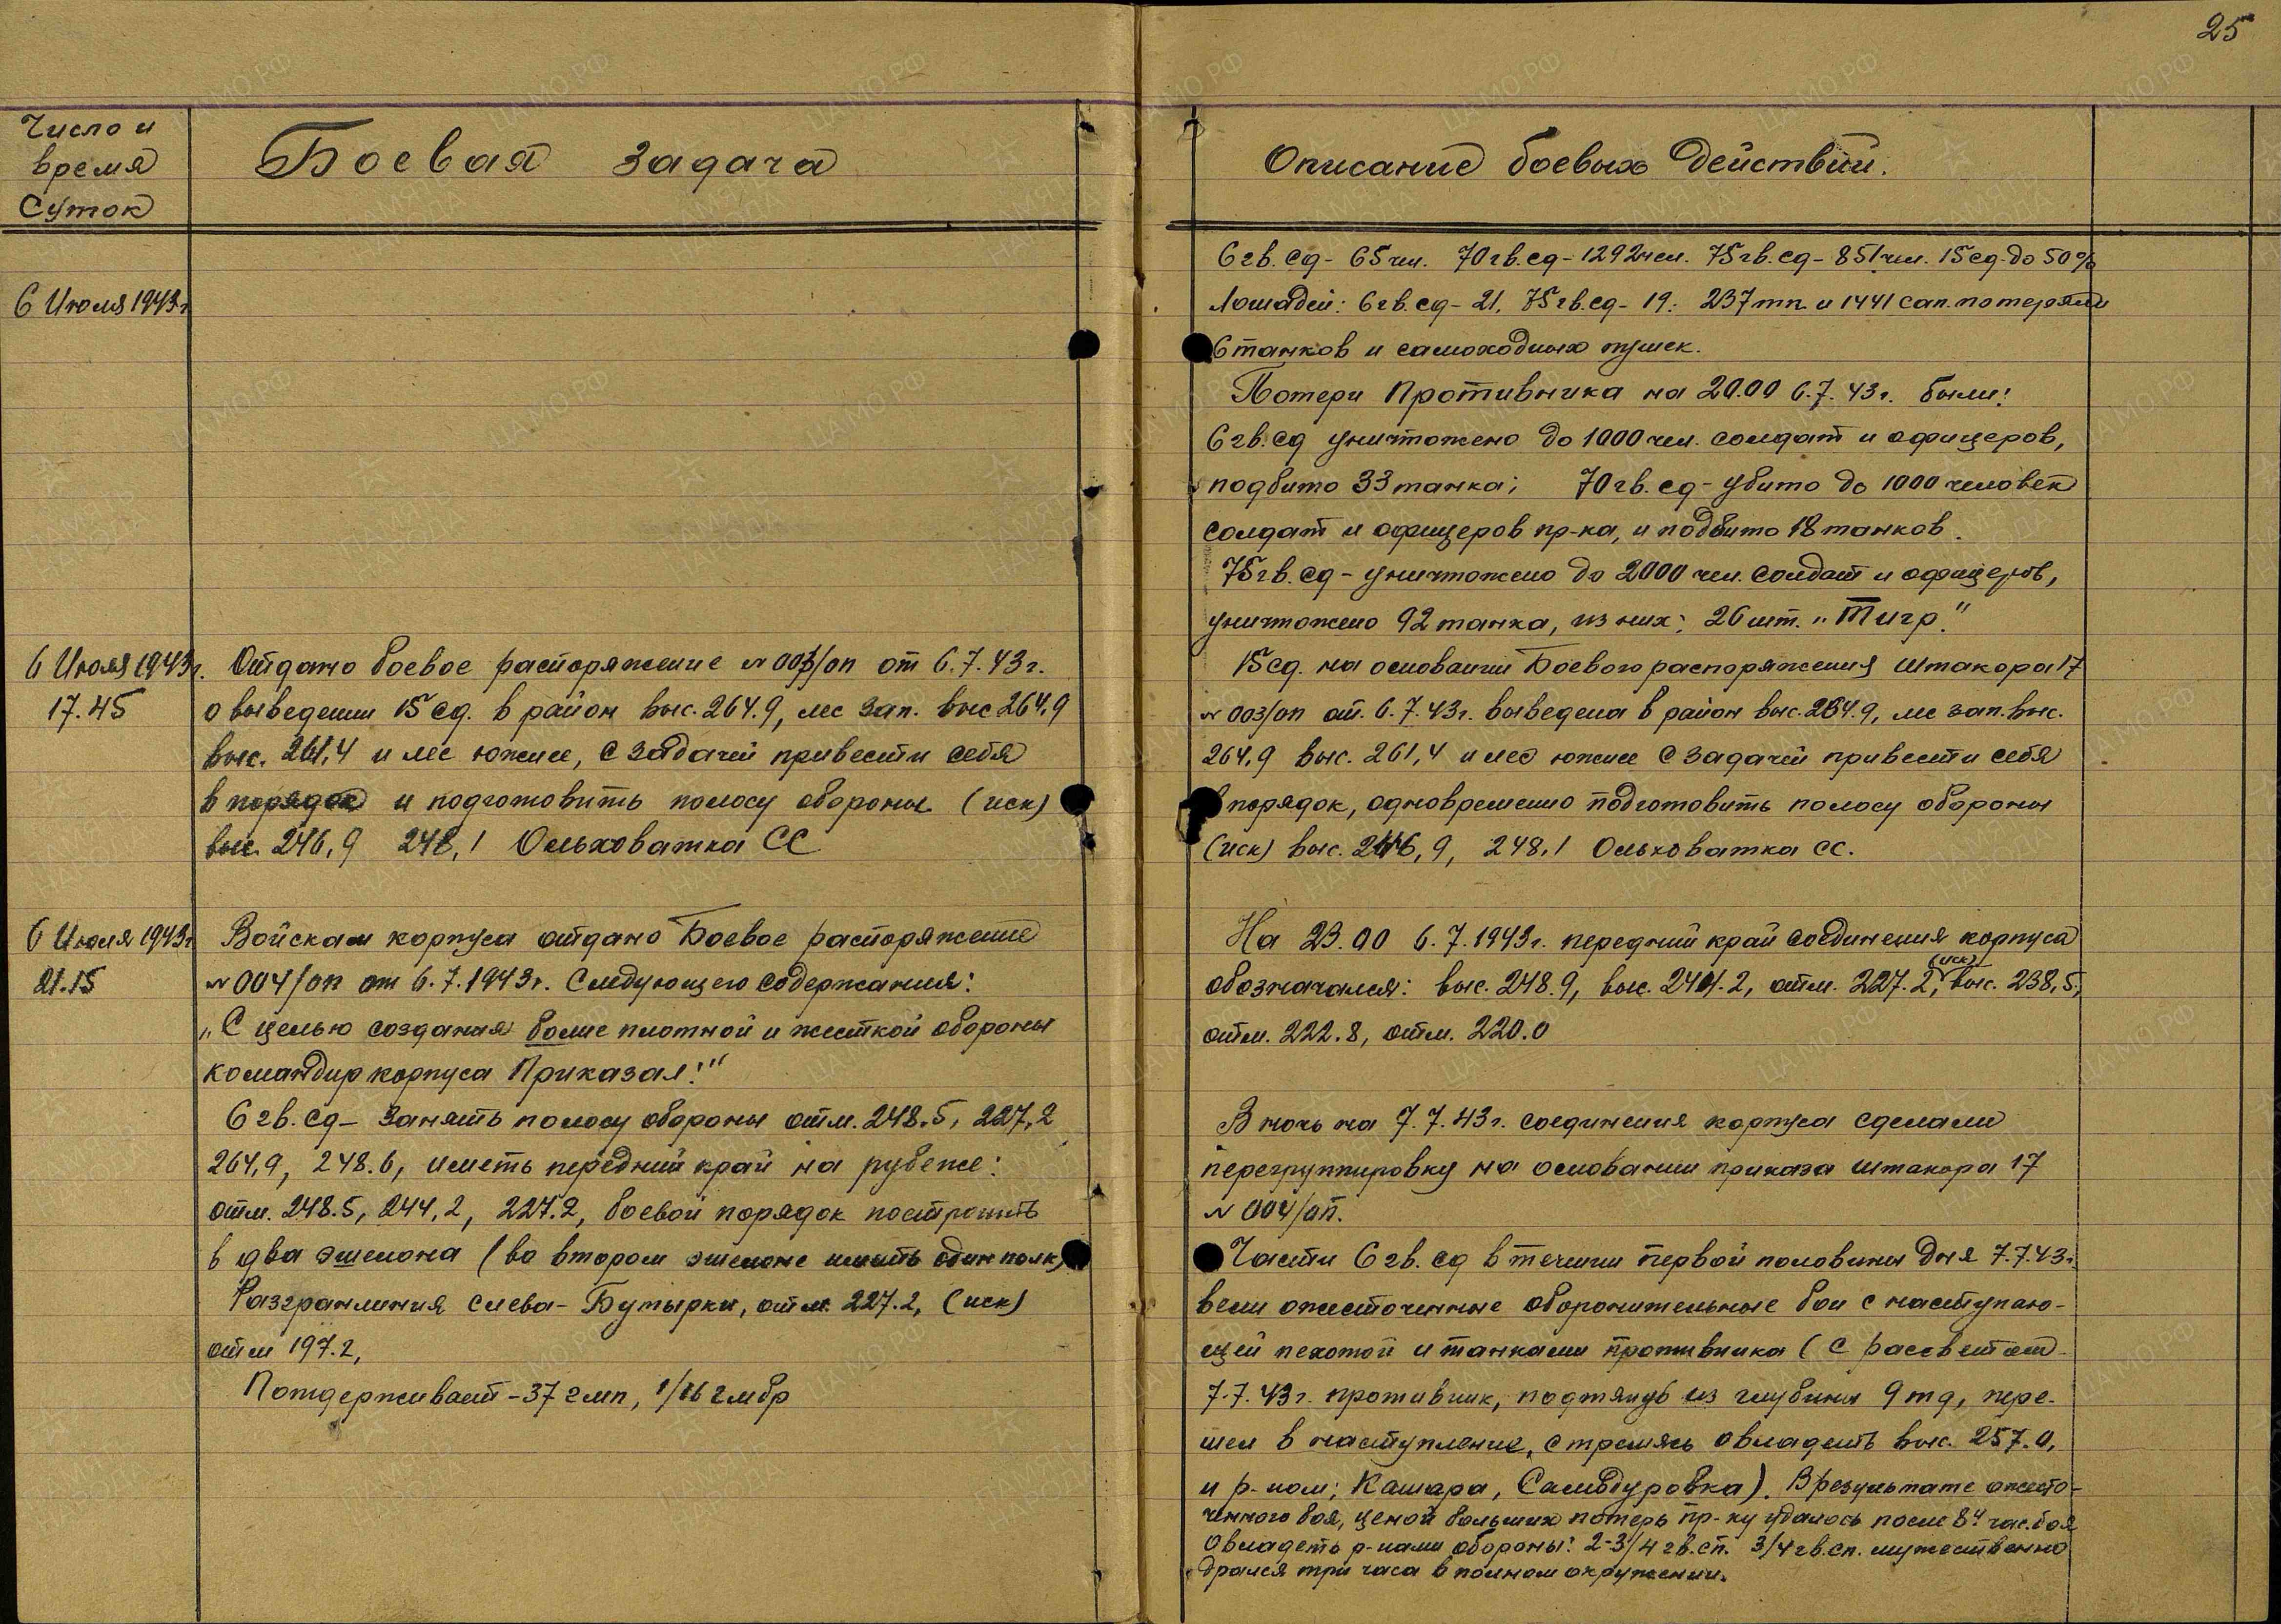 25
Число и
время
Суток
Боевая задача
6 Июля 1943г
6 Июля 1943г.
17.45
Отдано боевое распоряжение №003/оп от 6.7.43г.
о выведении 15 сд. в район выс. 264.9, лес зап. выс 264,9
выс. 261,4 и лес южнее, с задачей привести себя
в порядок и подготовить полосу обороны (иск)
выс. 246,9 248,1 Ольховатка СС
6 Июля 1943г
21.15
Войскам корпуса отдано Боевое распоряжение
№004/оп от 6.7.1943г. Следующего содержания:
„С целью создания более плотной и жесткой обороны
командир корпуса Приказал:"
6 гв. сд – занять полосу обороны отм. 248.5, 227,2
264,9, 248.6, иметь передний край на рубеже:
отм. 248.5, 244,2, 227.2, боевой порядок построить
в два эшелона (во втором эшелоне иметь один полк)
Разгранлиния слева – Бутырки, отм. 227.2, (иск)
отм 197.2,
Потдерживает – 37 гмп, 1/16 гмбр
Описание боевых действий.
6 гв. сд – 65 чел. 70 гв. сд – 1292 чел. 75 гв. сд – 851 чел. 15 сд – до 50%
Лошадей: 6 гв. сд – 21, 75 гв. сд – 19: 237 тп. и 1441 сап. потеряли
6 танков и самоходных пушек.
Потери Противника на 20.00 6.7.43г. были:
6 гв. сд уничтожено до 1000 чел. солдат и офицеров,
подбито 33 танка; 70 гв. сд – убито до 1000 человек
солдат и офицеров пр-ка, и подбито 18 танков.
75 гв. сд – уничтожено до 2000 чел. солдат и офицеров,
уничтожено 92 танка, из них: 26 шт. „Тигр".
15 сд. на основании Боевого распоряжения штакора 17
№ 003/оп от. 6.7.43г. выведена в район выс. 264.9, лес зап. выс.
264,9 выс. 261,4 и лес южнее с задачей привести себя
в порядок, одновременно подготовить полосу обороны
(иск) выс. 246,9, 248,1 Ольховатка СС.
На 23.00 6.7.1943г. передний край соединения корпуса
обозначался: выс. 248.9, выс. 244.2, отм. 227.2, (иск) выс. 238,5,
отм. 222.8, отм. 220.0
В ночь на 7.7.43г. соединения корпуса сделали
перегруппировку на основании приказа штакора 17
№ 004/оп.
Части 6 гв. сд в течении первой половины дня 7.7.43г.
вели ожесточенные оборонительные бои с наступаю-
щей пехотой и танками противника (с рассветом
7.7.43г. противник, подтянув из глубины 9 тд, пере-
шел в наступление, стремясь овладеть выс. 257.0,
и р-ном; Кашара, Самодуровка). В результате ожесто-
ченного боя, ценой больших потерь пр-ку удалось после 8ч час. боя
овладеть р-нами обороны: 2-3/4 гв. сп. 3/4 гв. сп. мужественно
дрался три часа в полном окружении.